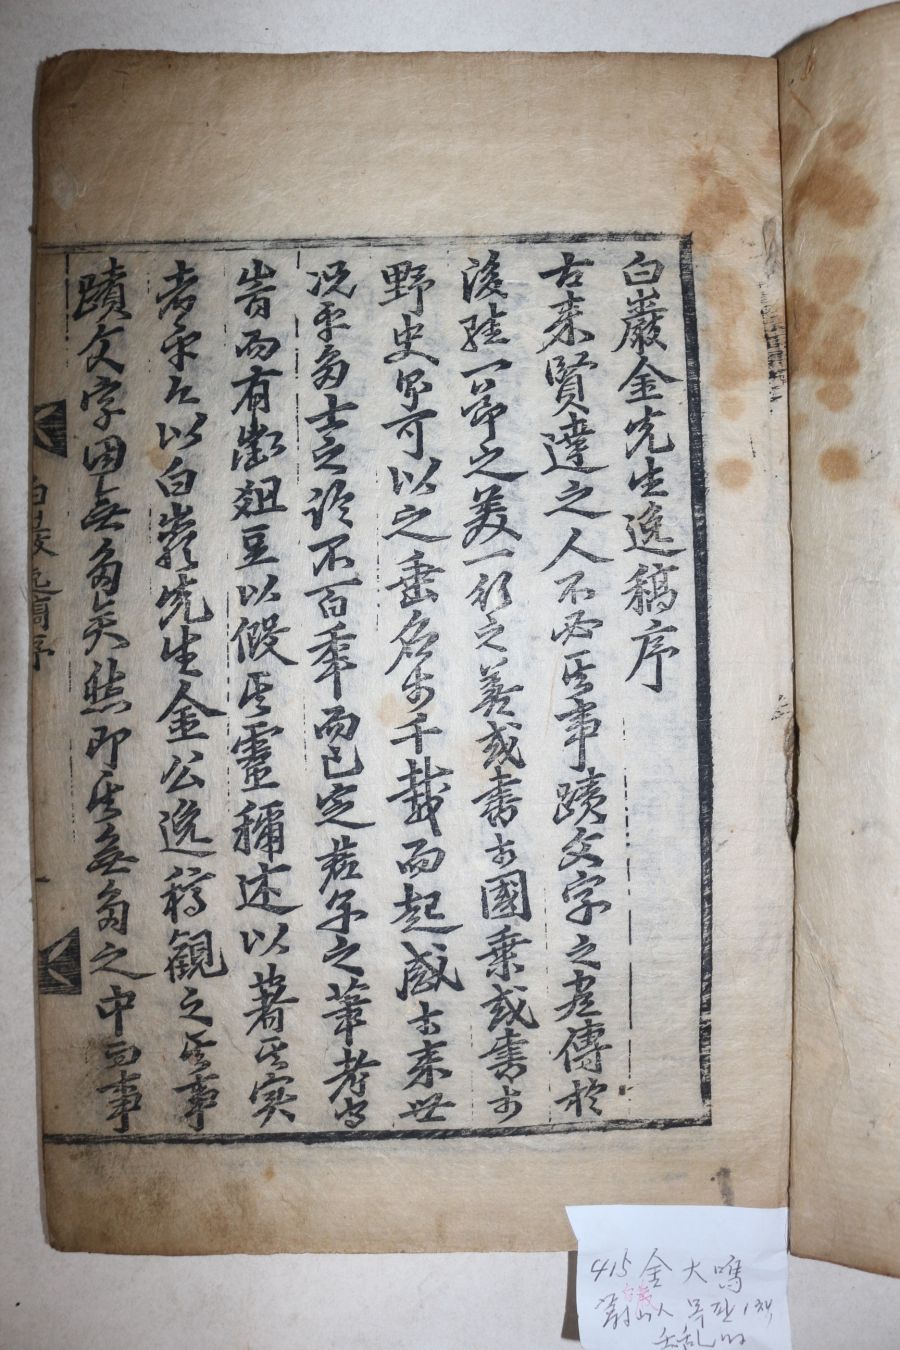 白巖金先生逸稿序
古來賢達之人不必其事蹟文字之盡傳於
後雖一節之美一行之善或書于國乘或書于
野史皆可以之垂名於千載而起感于來世
況乎多士之論不百年而已定君子之筆考
而有徵俎豆以假其靈稱述以著其實
者乎今以白巖先生金公逸稿觀之其事
蹟文字固無多矣然即其無多之中而事
白巖逸稿序
415 金大鳴
蔚山人 목판 1책
白巖
壬亂時